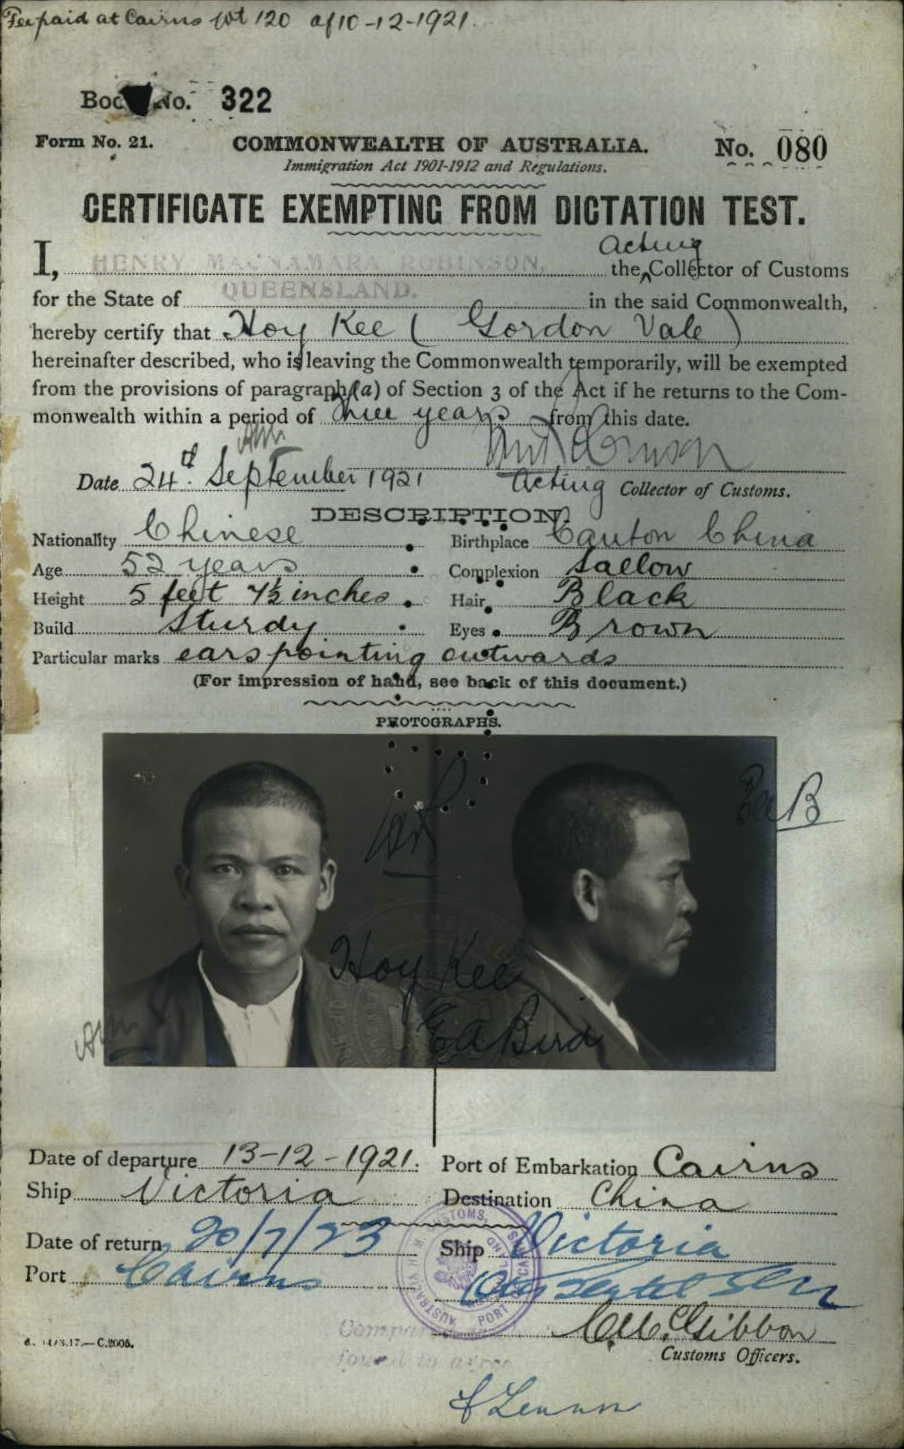 Fee paid at Cairns 120 of 10-12-1921.
Book No. 322
Form No. 21. COMMONWEALTH OF AUSTRALIA. No. 080
Immigration Act 1901-1912 and Regulations.
CERTIFICATE EXEMPTING FROM DICTATION TEST.
Acting
I, HENRY MACNAMARA ROBINSON, the Collector of Customs
for the State of QUEENSLAND. in the said Commonwealth,
hereby certify that Hoy Kee (Gordon Vale)
hereinafter described, who is leaving the Commonwealth temporarily, will be exempted
from the provisions of paragraph (a) of Section 3 of the Act if he returns to the Com-
monwealth within a period of three years from this date.
Date 24th September 1921 Acting Collector of Customs.
DESCRIPTION.
Nationality Chinese Birthplace Canton China
Age 52 years Complexion Sallow
Height 5 feet 4½ inches Hair Black
Build Sturdy Eyes Brown
Particular marks ears pointing outwards
(For impression of hand, see back of this document.)
PHOTOGRAPHS.
Hoy Kee
EA Bird
Date of departure 13-12-1921. Port of Embarkation Cairns
Ship Victoria Destination China
Date of return 20/7/23 Ship Victoria
Port Cairns
Customs Officers.